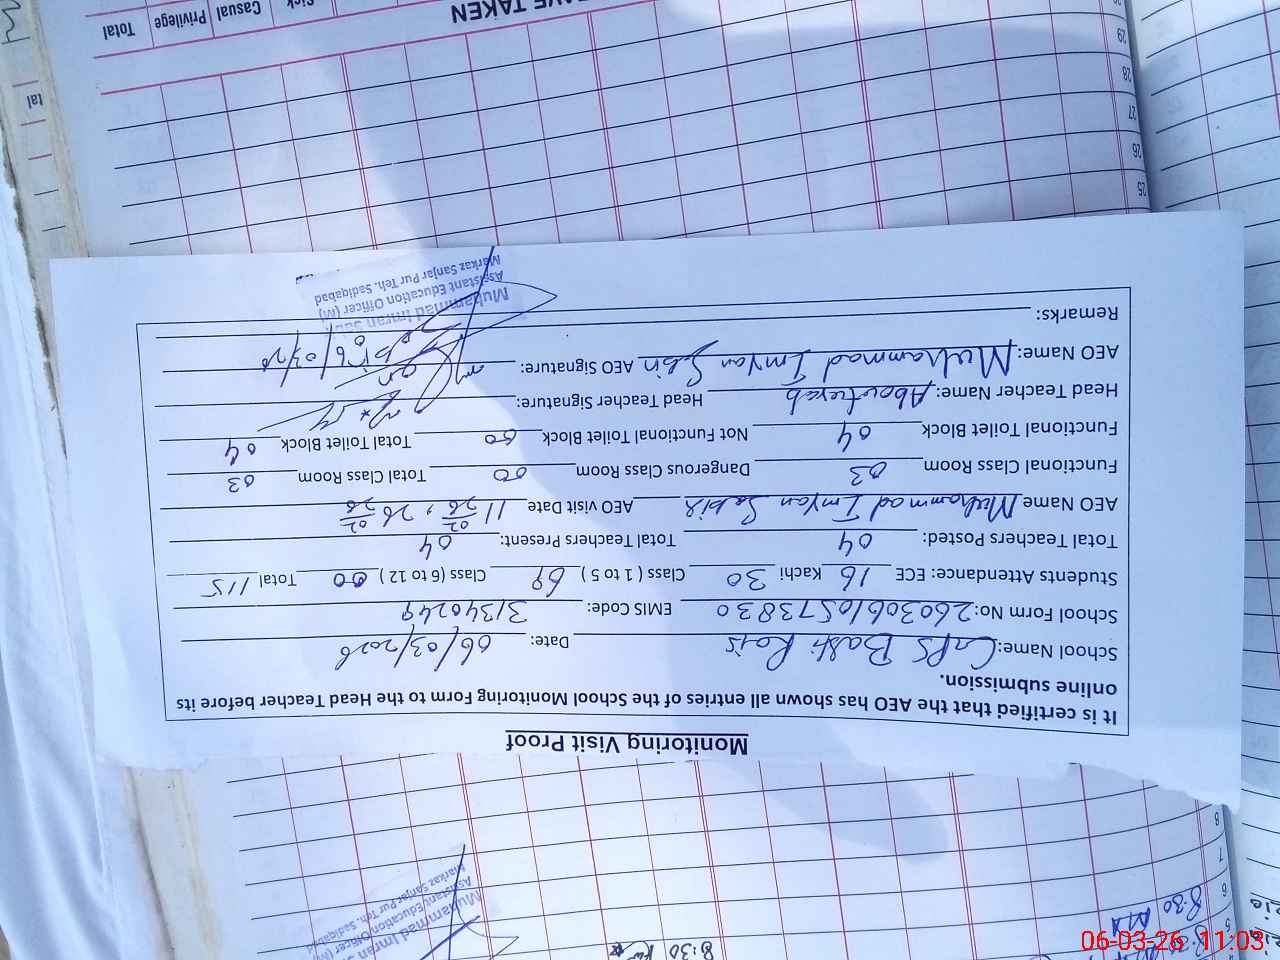 Monitoring Visit Proof
It is certified that the AEO has shown all entries of the School Monitoring Form to the Head Teacher before its
online submission.
School Name: GPS Basti Rais Date: 06/03/2026
School Form No: 260306105573830 EMIS Code: 31340249
Students Attendance: ECE 16 Kachi 30 Class ( 1 to 5 ) 69 Class (6 to 12 ) 00 Total 115
Total Teachers Posted: 04 Total Teachers Present: 04
AEO Name Muhammad Imran Sabir AEO visit Date 11/02/26, 26/02/26
Functional Class Room 03 Dangerous Class Room 00 Total Class Room 03
Functional Toilet Block 04 Not Functional Toilet Block 00 Total Toilet Block 04
Head Teacher Name: Head Teacher Signature:
AEO Name: Muhammad Imran Sabir AEO Signature:
Remarks:
Muhammad Imran
Assistant Education Officer (M)
Markaz Sanjar Pur Teh. Sadiqabad
LEAVE TAKEN
Sick Casual Privilege Total
25
26
27
28
29
5
6
7
8
8:30
8:30
Muhammad Imran
Assistant Education Officer (M)
Markaz Sanjar Pur Teh. Sadiqabad
06-03-26 11:03